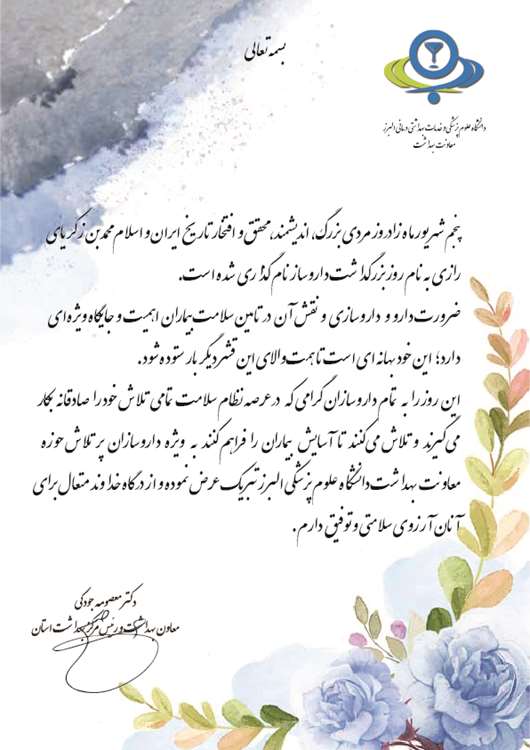 بسمه تعالی
دانشگاه علوم پزشکی و خدمات بهداشتی درمانی البرز
معاونت بهداشت
پنجم شهریور ماه زادروز مردی بزرگ، اندیشمند، محقق و افتخار تاریخ ایران و اسلام محمد بن زکریای
رازی به نام روز بزرگداشت داروساز نام گذاری شده است.
ضرورت دارو و داروسازی و نقش آن در تامین سلامت بیماران اهمیت و جایگاه ویژه ای
دارد؛ این خود بهانه ای است تا همت والای این قشر دیگر بار ستوده شود.
این روز را به تمام داروسازان گرامی که در عرصه نظام سلامت تمامی تلاش خود را صادقانه بکار
می گیرند و تلاش می کنند تا آسایش بیماران را فراهم کنند به ویژه داروسازان پر تلاش حوزه
معاونت بهداشت دانشگاه علوم پزشکی البرز تبریک عرض نموده و از درگاه خداوند متعال برای
آنان آرزوی سلامتی و توفیق دارم.
دکتر معصومه جودکی
معاون بهداشت و رئیس مرکز بهداشت استان